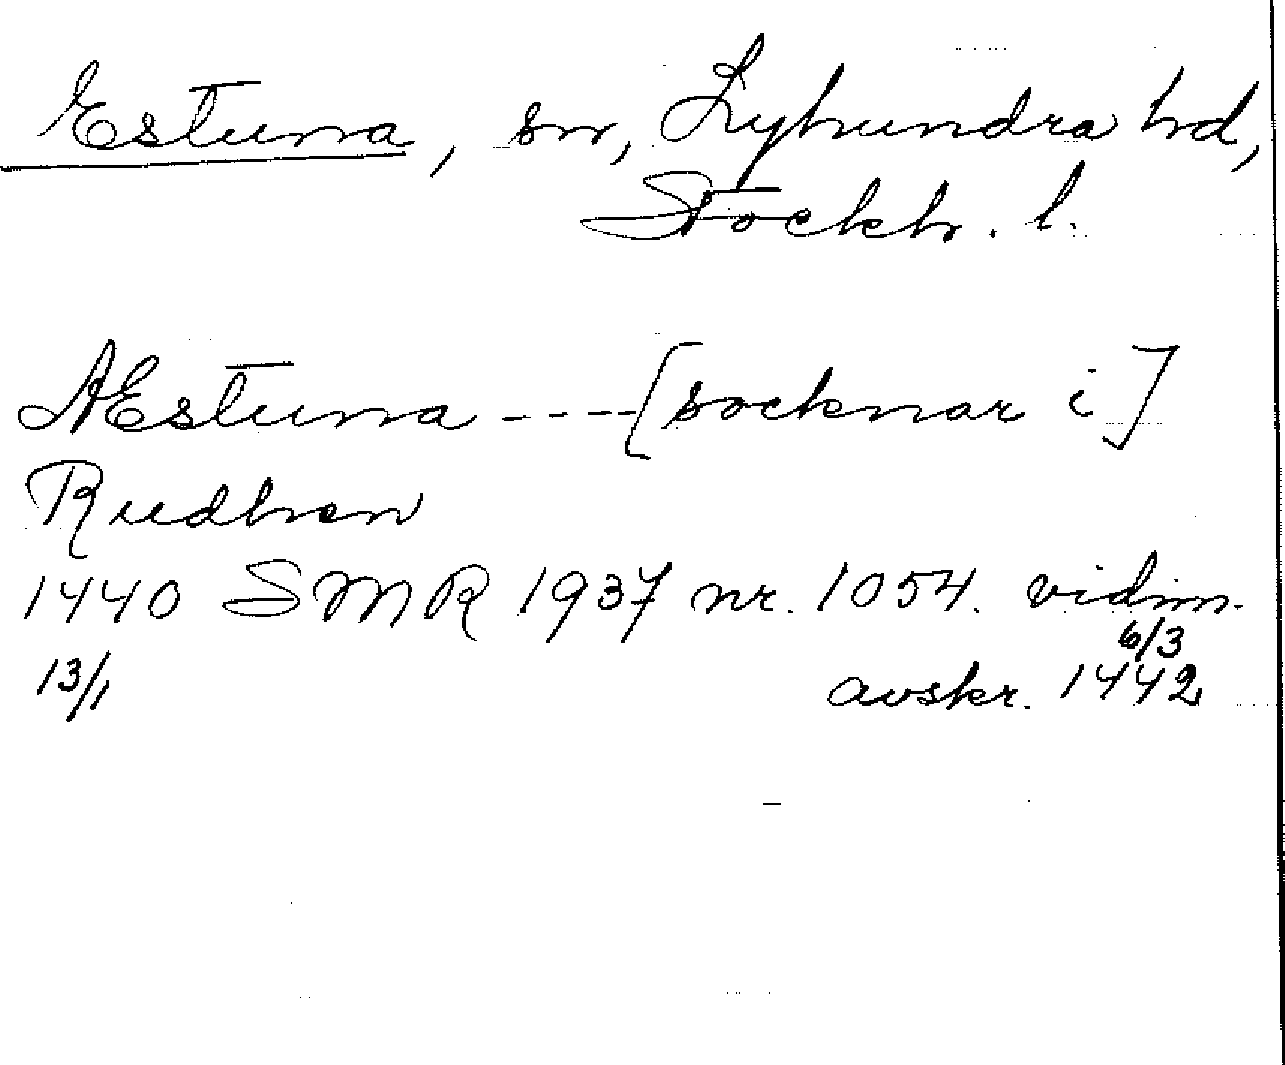 Estuna, sn, Lyhundra hd,
Stockh. l.
AEstuna ---- [socknar i]
Rudhen
1440 SMR 1937 nr. 1054. vidim.
13/1 avskr. 6/3 1442